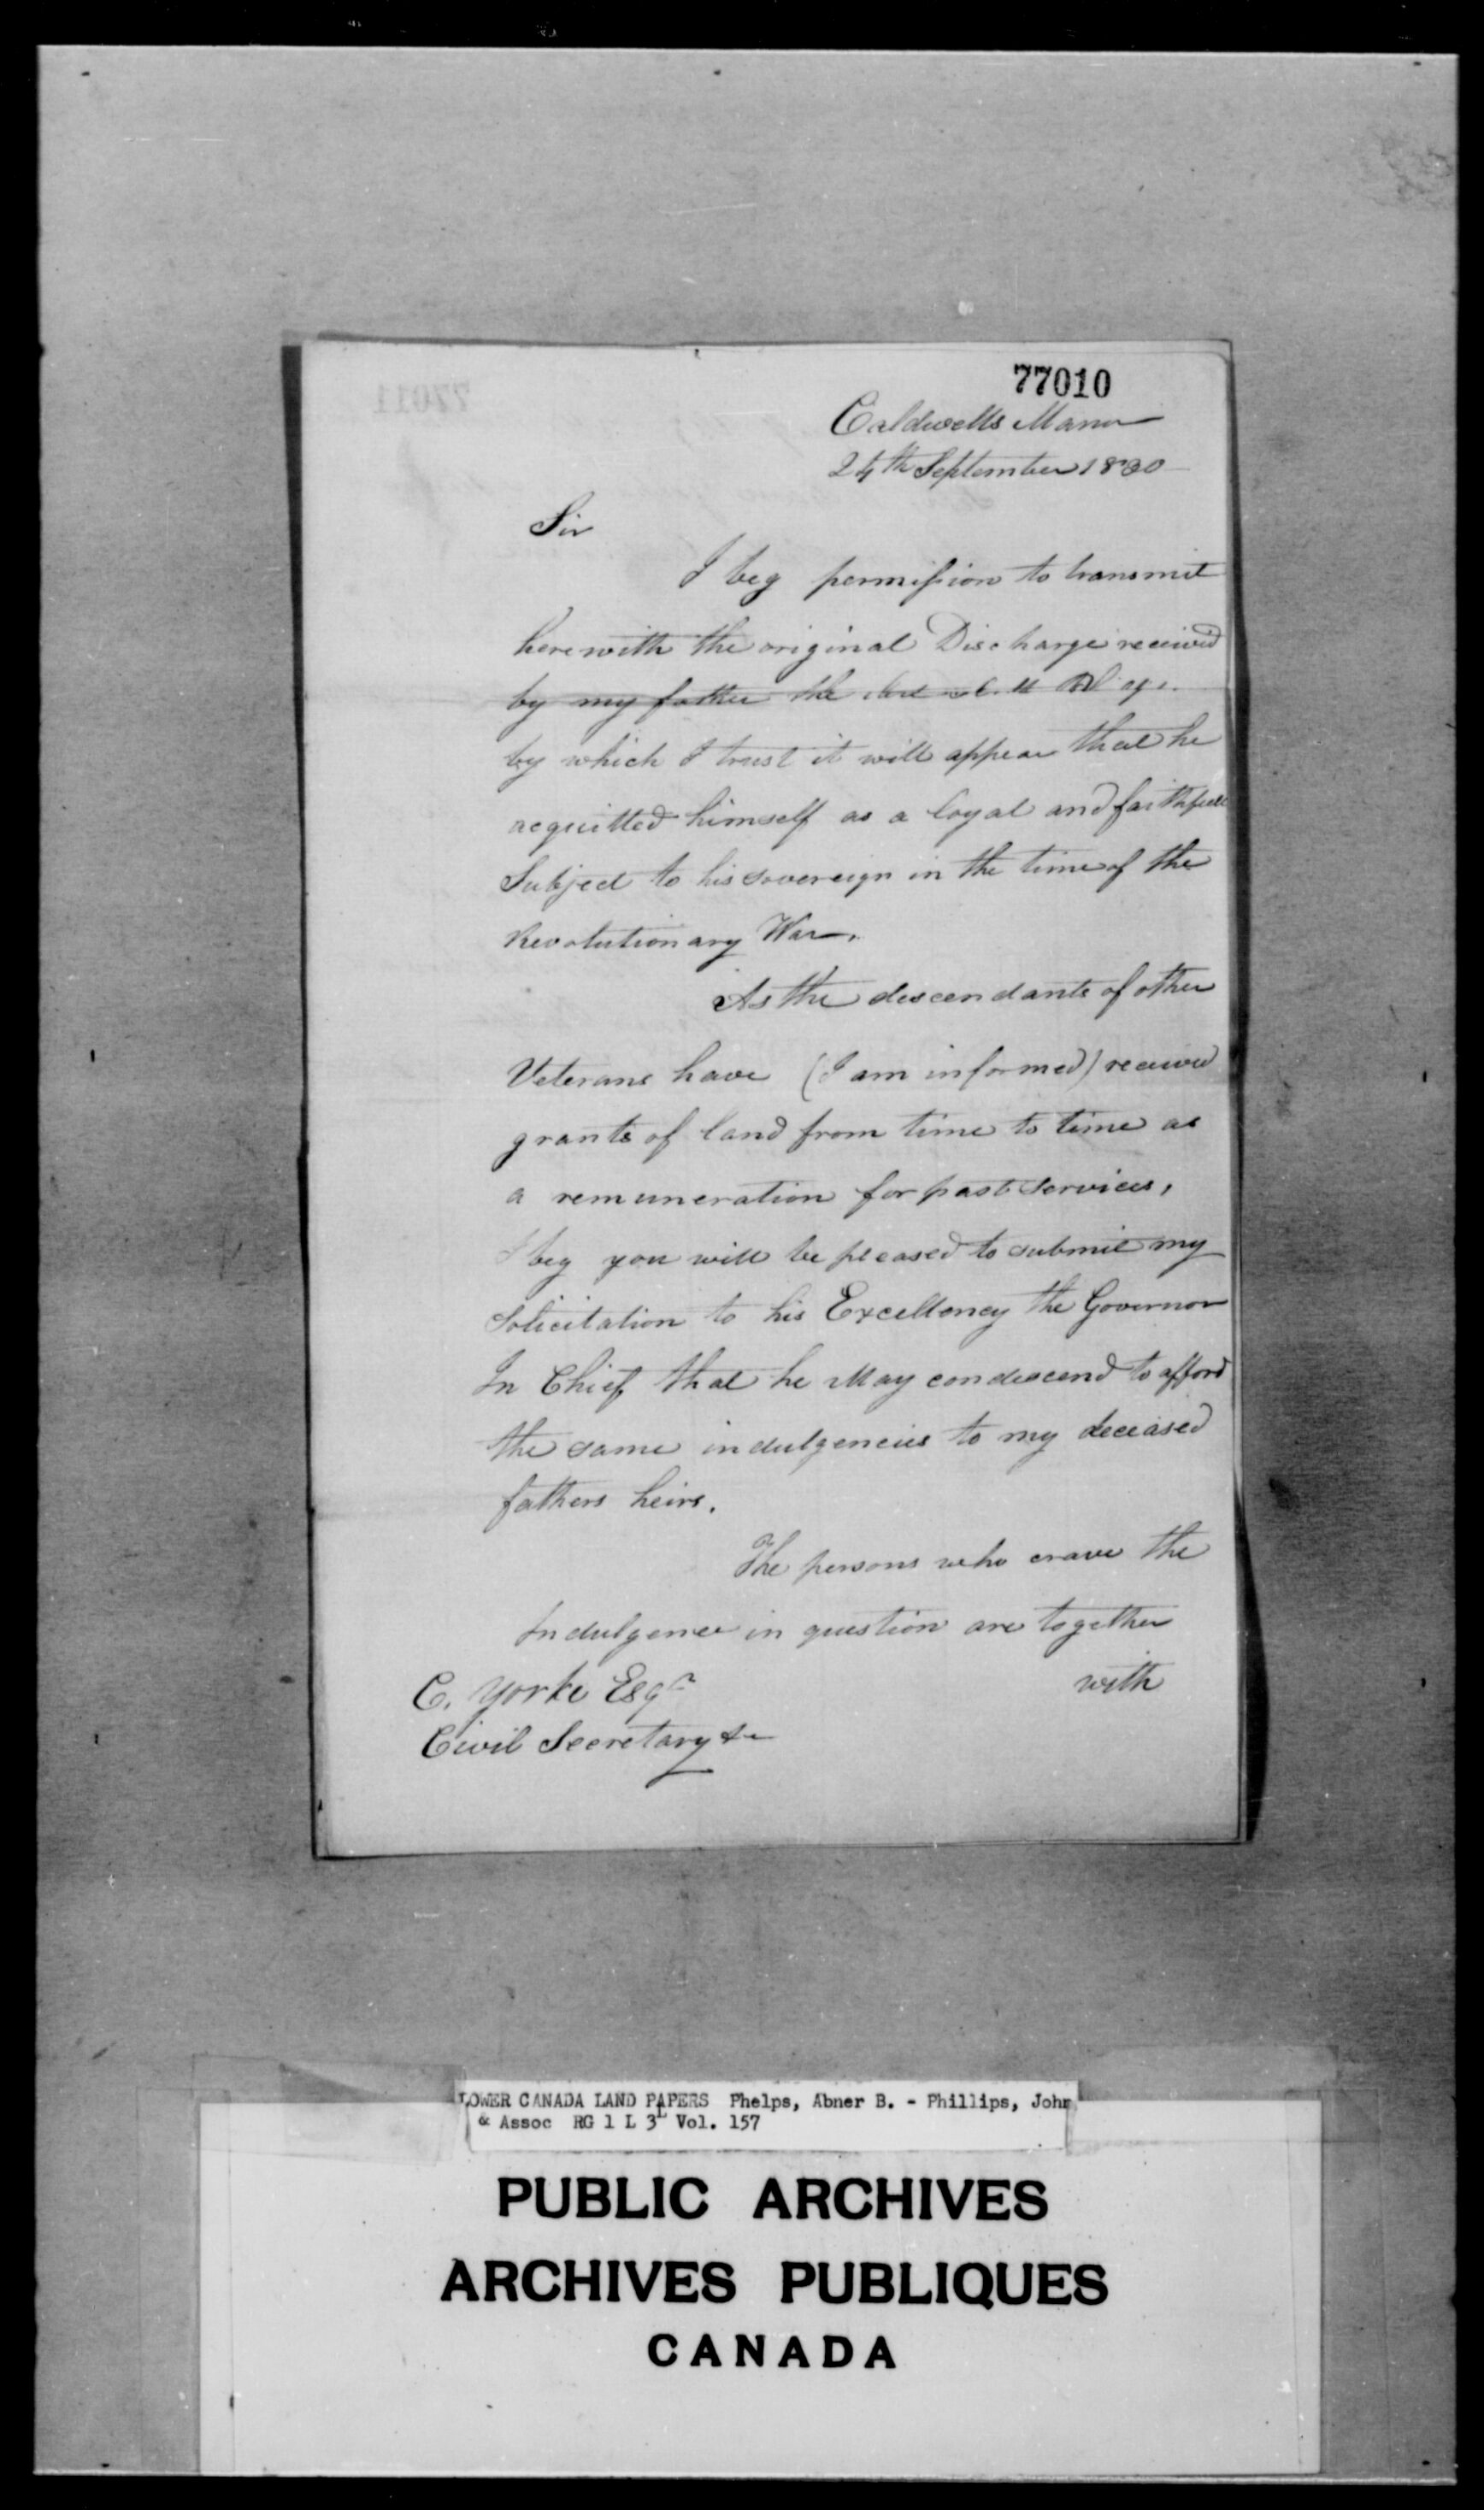 77010
Caldwells Manor
24th September 1830
Sir
I beg permission to transmit
herewith the original Discharge received
by my father the
by which I trust it will appear that he
acquitted himself as a loyal and faithfull
Subject to his sovereign in the time of the
Revolutionary War.
As the descendants of other
Veterans have (I am informed) received
grants of land from time to time as
a remuneration for past services,
I beg you will be pleased to submit my
Solicitation to his Excellency the Governor
In Chief that he May condescend to afford
the same indulgencies to my deceased
fathers heirs.
The persons who crave the
Indulgence in question are together
with
C. Yorke Esqr
Civil Secretary &c
77011
LOWER CANADA LAND PAPERS Phelps, Abner B. - Phillips, John
& Assoc RG 1 L 3L Vol. 157
PUBLIC ARCHIVES
ARCHIVES PUBLIQUES
CANADA